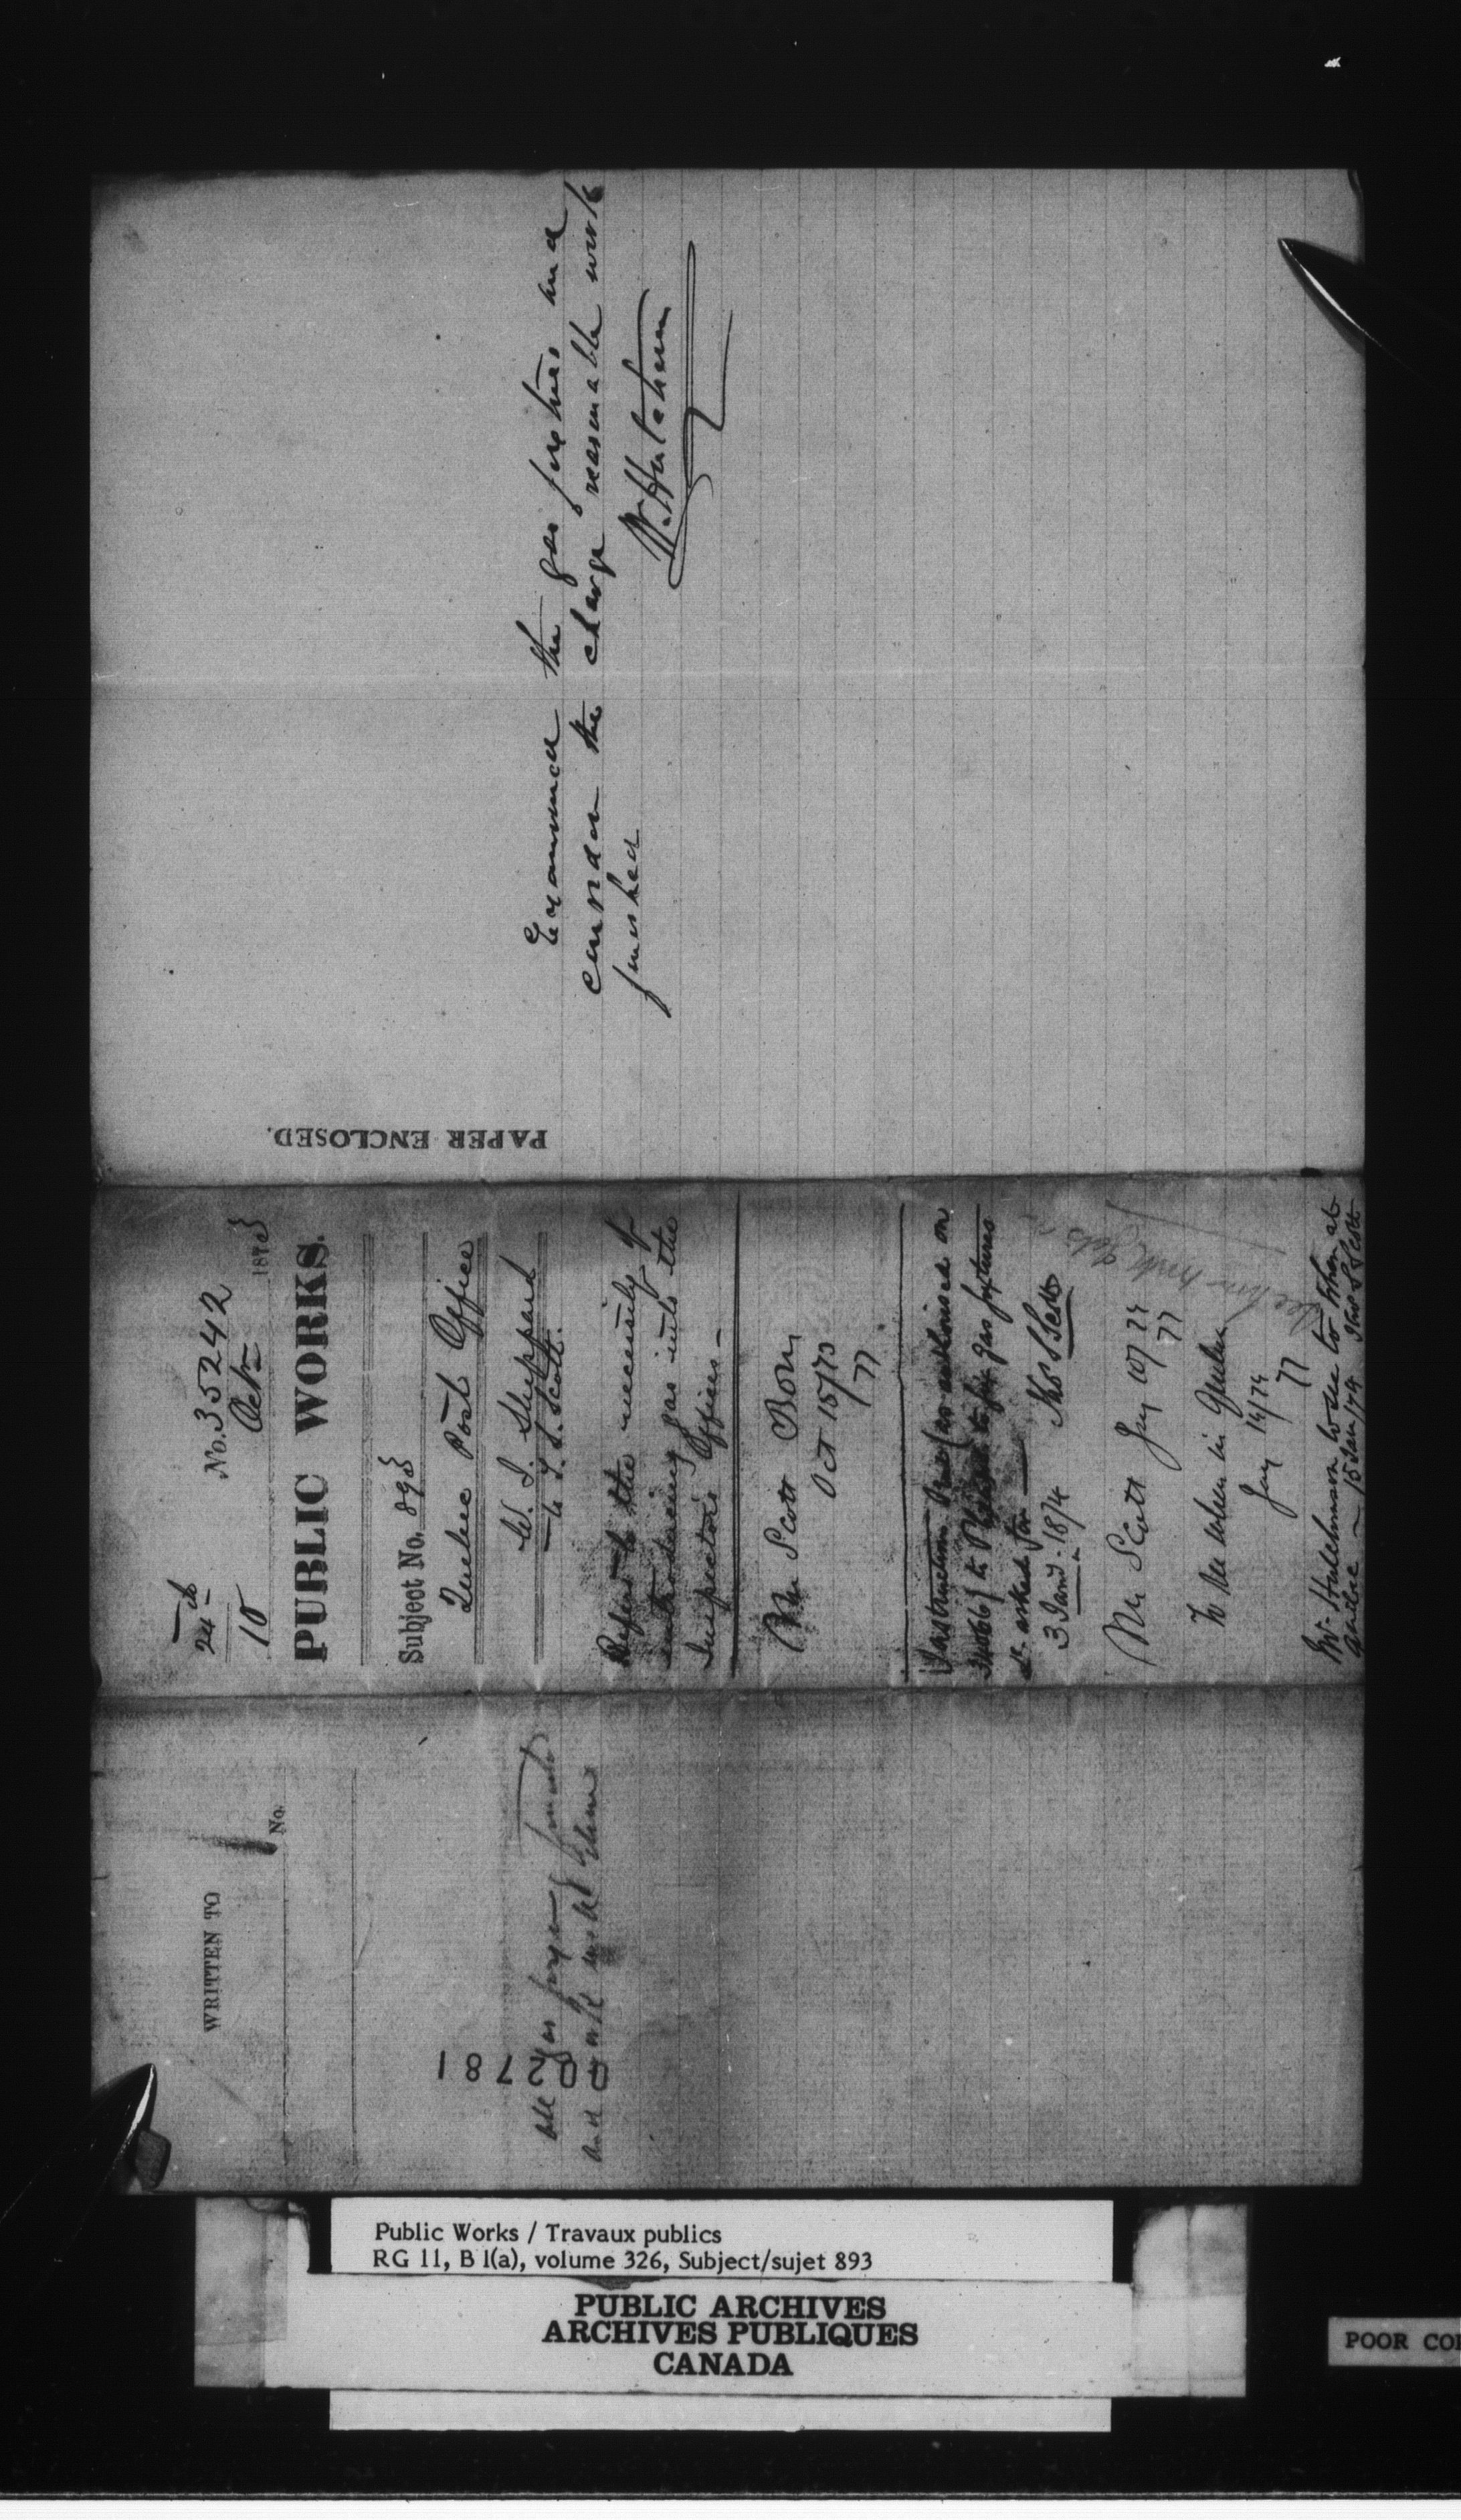 Examined the gas fixtures and
consider the charge reasonable work
finished
W. Hutchison
PAPER ENCLOSED.
24th
10
No. 35242
Octr 1873
PUBLIC WORKS.
Subject No. 893
Quebec Post Office
W. S. Sheppard
to T. S. Scott.
Refers to the necessity of
introducing gas into the
Inspector's Offices —
Mr Scott Bon
Oct 15/73
77
Instruction authorised on
to gas fixtures
as asked for —
3 Jany. 1874 Thos S Scott
Mr Scott Jny 10/74
77
To see when in Quebec
Jny 14/74
77
Mr. Hutchison to see to when at
Quebec — 15 Jan/74 Thos S Scott
WRITTEN TO
No.
All gas
and
002781
Public Works / Travaux publics
RG 11, B 1(a), volume 326, Subject/sujet 893
PUBLIC ARCHIVES
ARCHIVES PUBLIQUES
CANADA
POOR CO